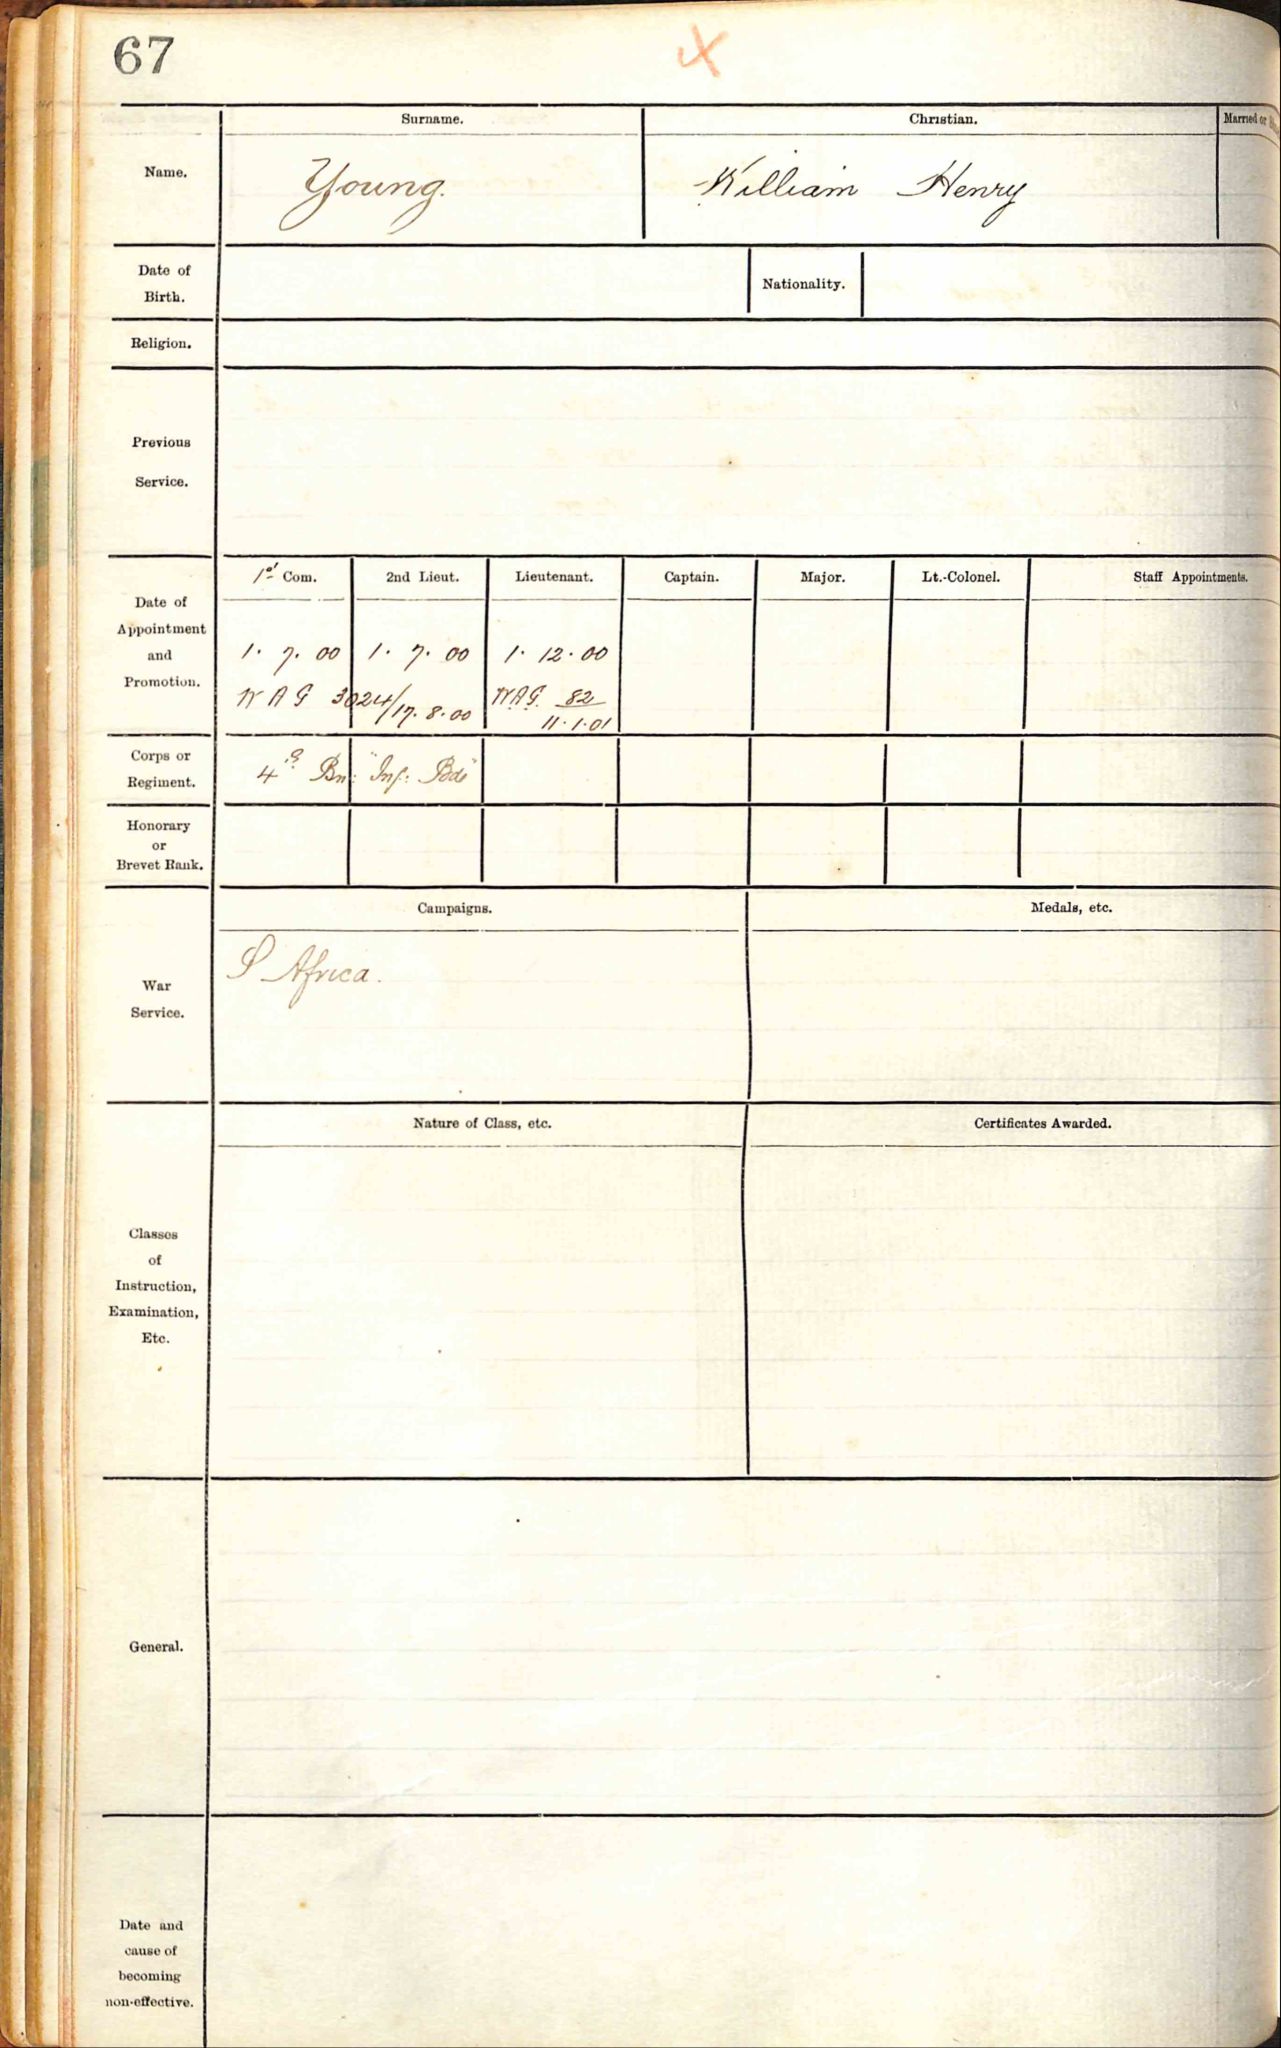 67
Surname. Christian. Married or
Name. Young. William Henry
Date of Birth. Nationality.
Religion.
Previous Service.
1st Com. 2nd Lieut. Lieutenant. Captain. Major. Lt.-Colonel. Staff Appointments.
Date of Appointment and Promotion.
1. 7. 00 1. 7. 00 1. 12. 00
W A G 3024/17. 8. 00 W.A.G. 82
11. 1. 01
Corps or Regiment. 4th Bn: "Inf: Bde"
Honorary or Brevet Rank.
Campaigns. Medals, etc.
War Service. S Africa.
Nature of Class, etc. Certificates Awarded.
Classes
of
Instruction,
Examination,
Etc.
General.
Date and
cause of
becoming
non-effective.